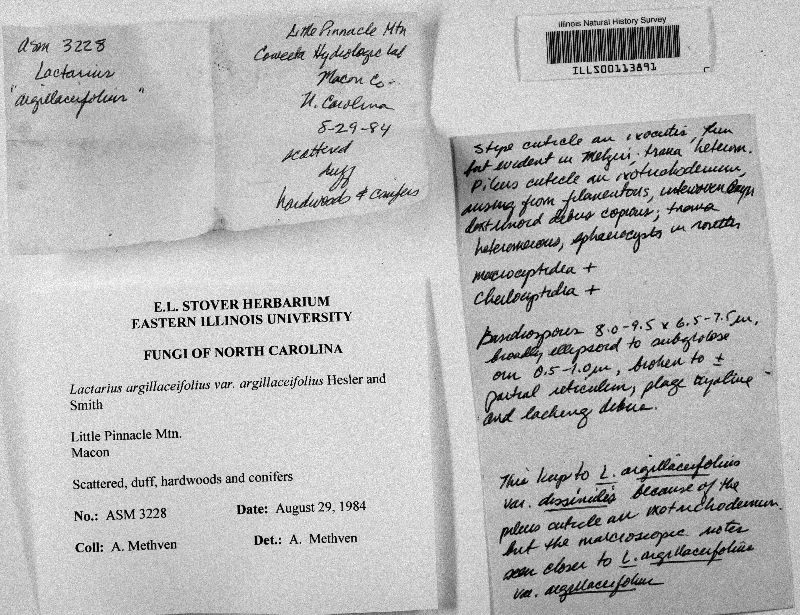 ASM 3228
Lactarius
"argillaceifolius"
Little Pinnacle Mtn
Coweeta Hydrologic Lab
Macon Co.
N. Carolina
8-29-84
scattered
duff
hardwoods & conifers
Illinois Natural History Survey
ILLS00113891
Stipe cuticle an ixocutis, thin
but evident in Melzer's; trama heterom.
Pileus cuticle an ixotrichodermium,
arising from filamentous, interwoven
debris copious; trama
heteromerous, sphaerocysts in rosettes
macrocystidia +
Cheilocystidia +
Basidiospores 8.0-9.5 x 6.5-7.5 µm,
broadly ellipsoid to subglobose
orn 0.5-1.0 µm, broken to ±
partial reticulum, plage hyaline
and lacking debris.
This keys to L. argillaceifolius
var. dissimilis because of the
pileus cuticle an ixotrichodermium
but the macroscopic notes
seem closer to L. argillaceifolius
var. argillaceifolius
E.L. STOVER HERBARIUM
EASTERN ILLINOIS UNIVERSITY
FUNGI OF NORTH CAROLINA
Lactarius argillaceifolius var. argillaceifolius Hesler and
Smith
Little Pinnacle Mtn.
Macon
Scattered, duff, hardwoods and conifers
No.: ASM 3228 Date: August 29, 1984
Coll: A. Methven Det.: A. Methven